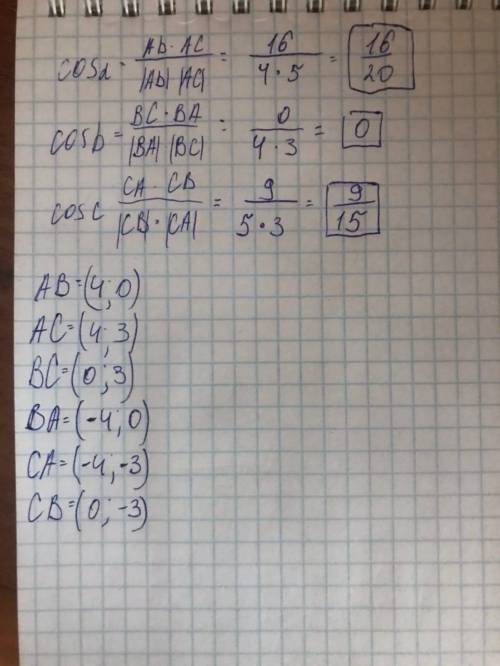 cosa = Ab · AC / |Ab| |AC| = 16 / 4 · 5 = 16 / 20
cosb = BC · BA / |BA| |BC| = 0 / 4 · 3 = 0
cosc CA · CB / |CB| · |CA| = 9 / 5 · 3 = 9 / 15
AB=(4; 0)
AC=(4; 3)
BC=(0; 3)
BA=(-4; 0)
CA=(-4; -3)
CB=(0; -3)